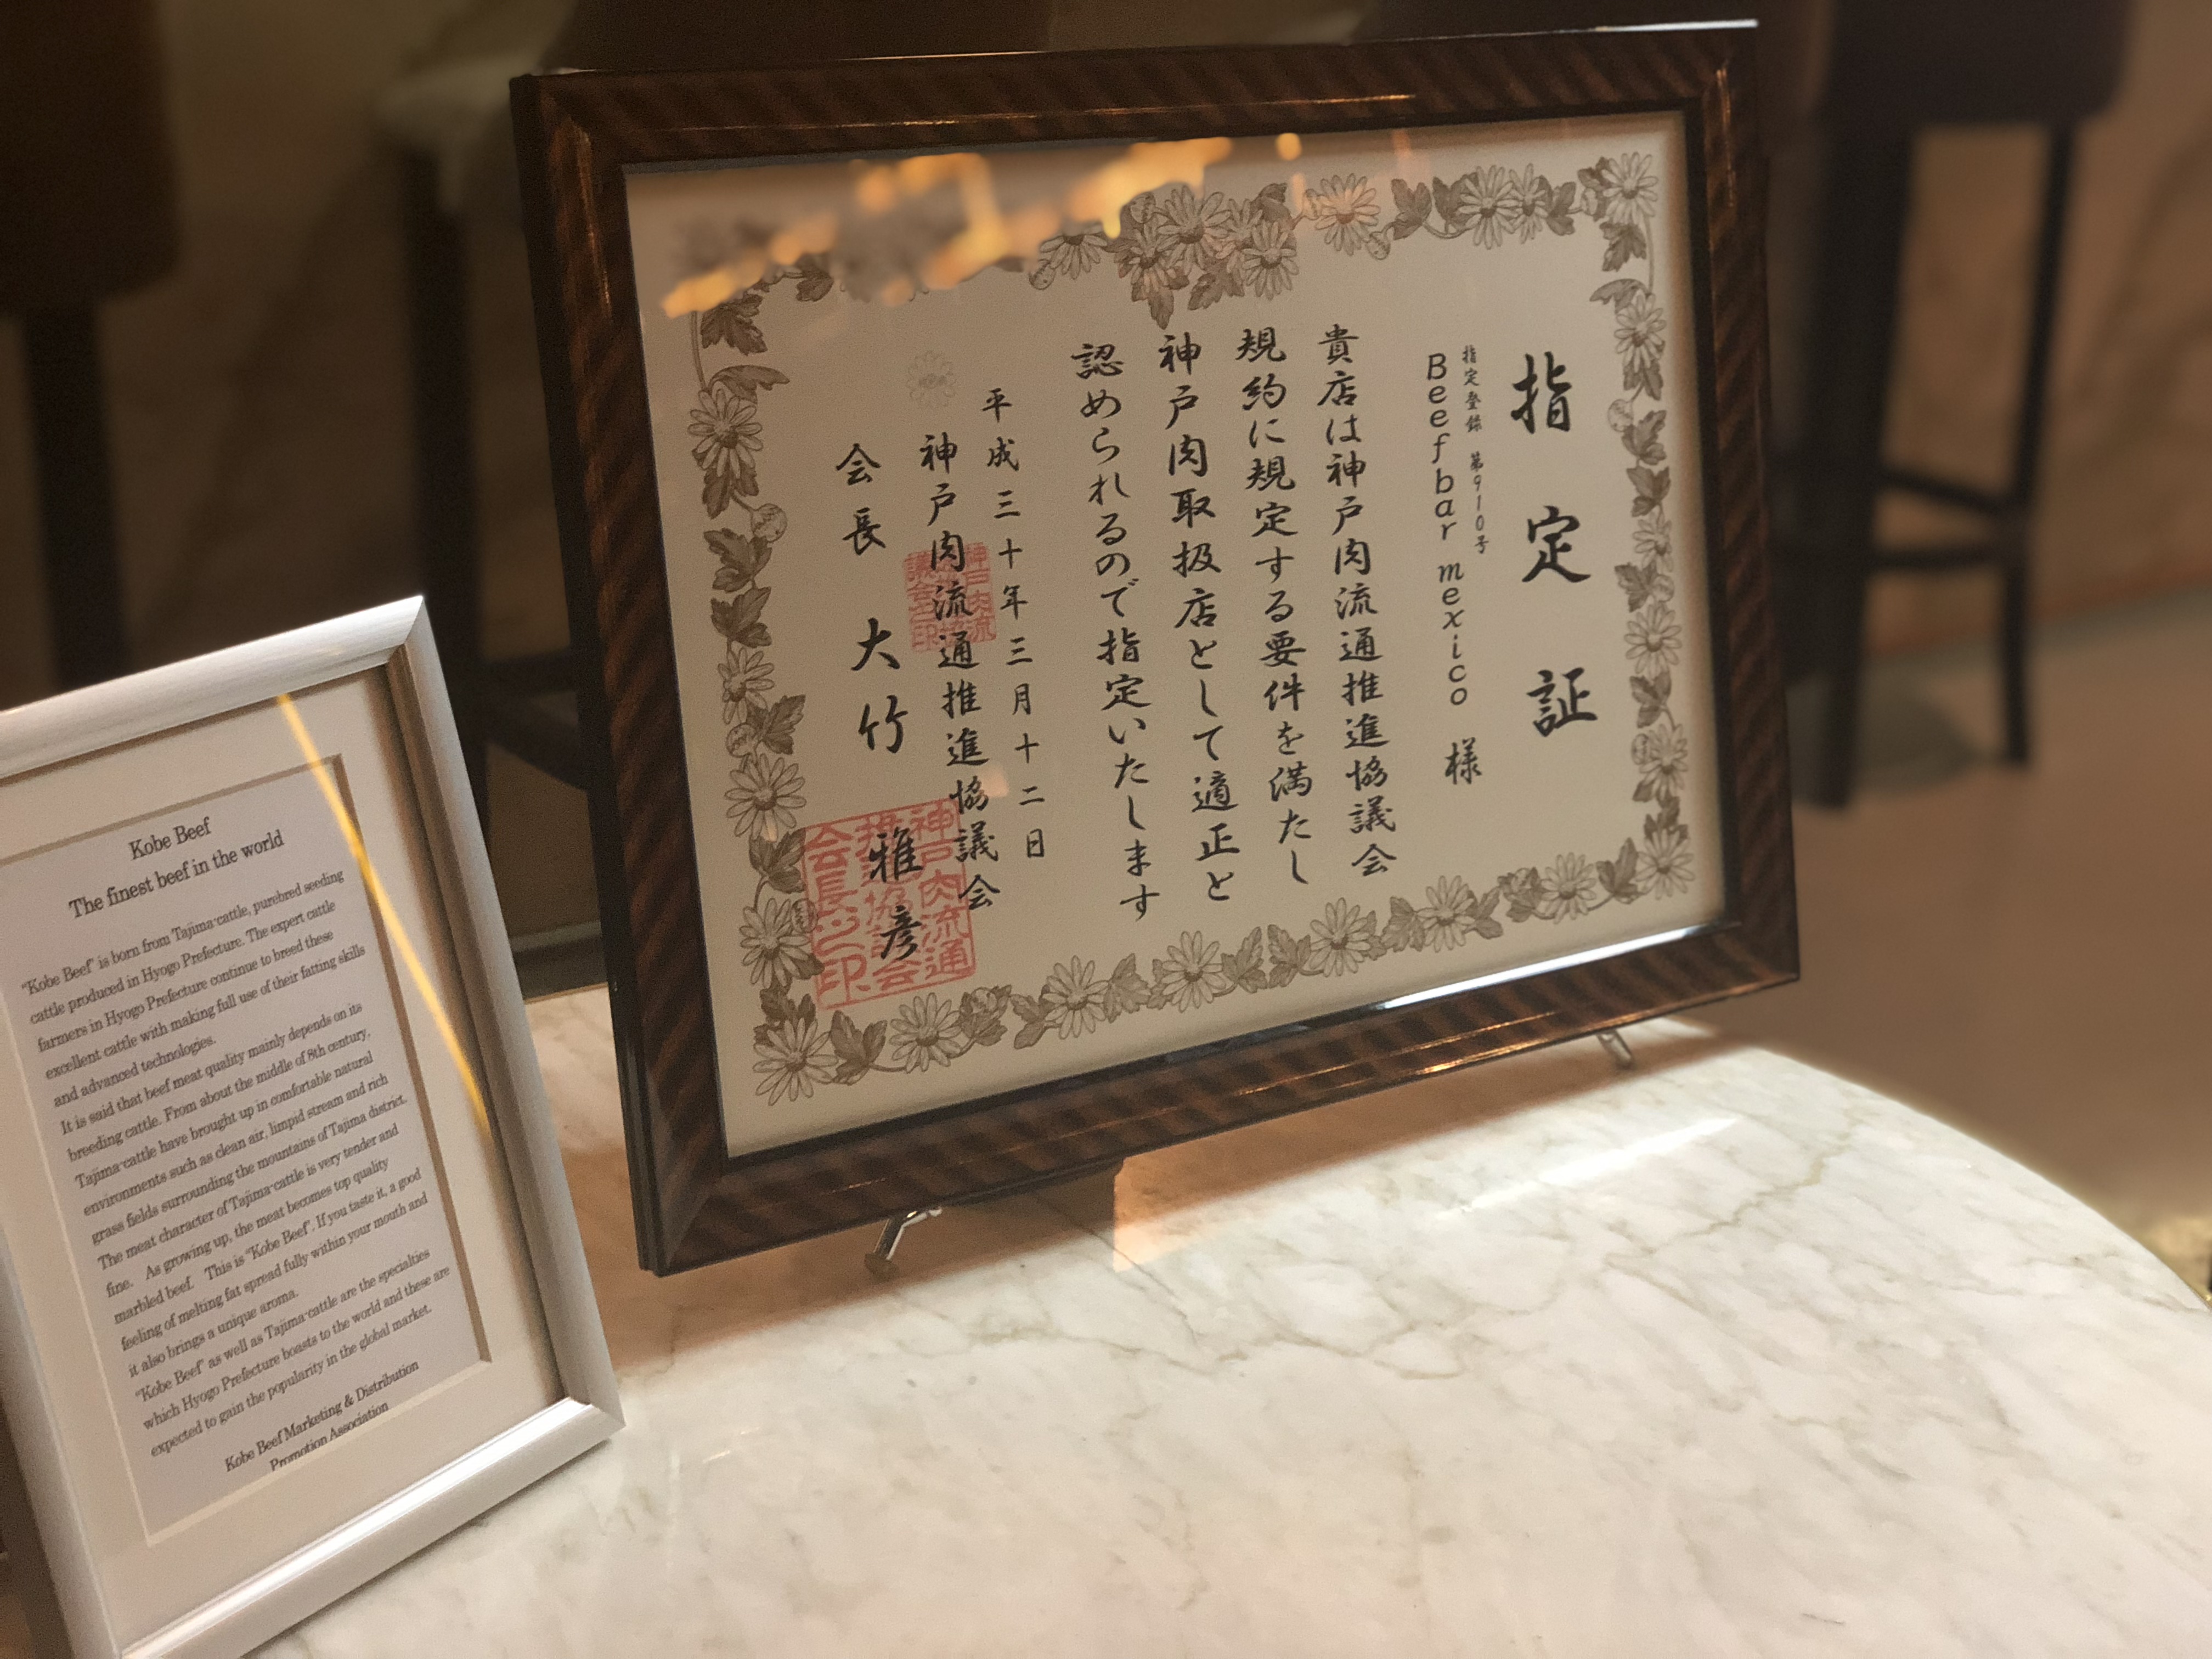 指定証
指定登録 第910号
Beefbar mexico 様
貴店は神戸肉流通推進協議会
規約に規定する要件を満たし
神戸肉取扱店として適正と
認められるので指定いたします
平成三十年三月十二日
神戸肉流通推進協議会
会長 大竹雅彦
Kobe Beef
The finest beef in the world
"Kobe Beef" is born from Tajima-cattle, purebred seeding
cattle produced in Hyogo Prefecture. The expert cattle
farmers in Hyogo Prefecture continue to breed these
excellent cattle with making full use of their fatting skills
and advanced technologies.
It is said that beef meat quality mainly depends on its
breeding cattle. From about the middle of 8th century,
Tajima-cattle have brought up in comfortable natural
environments such as clean air, limpid stream and rich
grass fields surrounding the mountains of Tajima district.
The meat character of Tajima-cattle is very tender and
fine. As growing up, the meat becomes top quality
marbled beef. This is "Kobe Beef". If you taste it, a good
feeling of melting fat spread fully within your mouth and
it also brings a unique aroma.
"Kobe Beef" as well as Tajima-cattle are the specialties
which Hyogo Prefecture boasts to the world and these are
expected to gain the popularity in the global market.
Kobe Beef Marketing & Distribution
Promotion Association